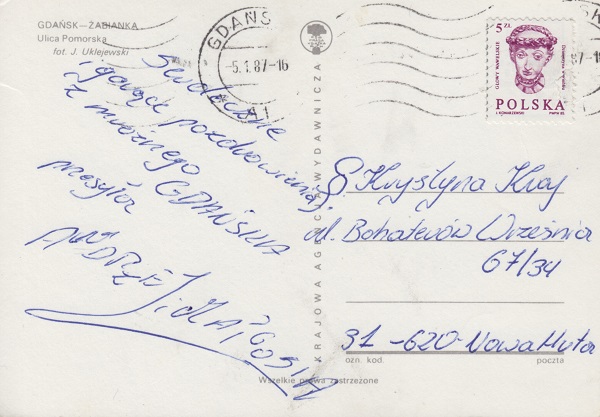 GDAŃSK—ŻABIANKA
Ulica Pomorska
fot. J. Uklejewski
GDAŃSK
-5.1.87-16
5 ZŁ
GŁOWY WAWELSKIE
POLSKA
87-1
Serdeczne
i gorące pozdrowienia
z mroźnego GDAŃSKA
przesyła
ANDRZEJ i MAŁGOSIA
KRAJOWA AGENCJA WYDAWNICZA
Krystyna Kraj
ul. Bohaterów Września
67/34
31-620-Nowa Huta
ozn. kod.
poczta
Wszelkie prawa zastrzeżone